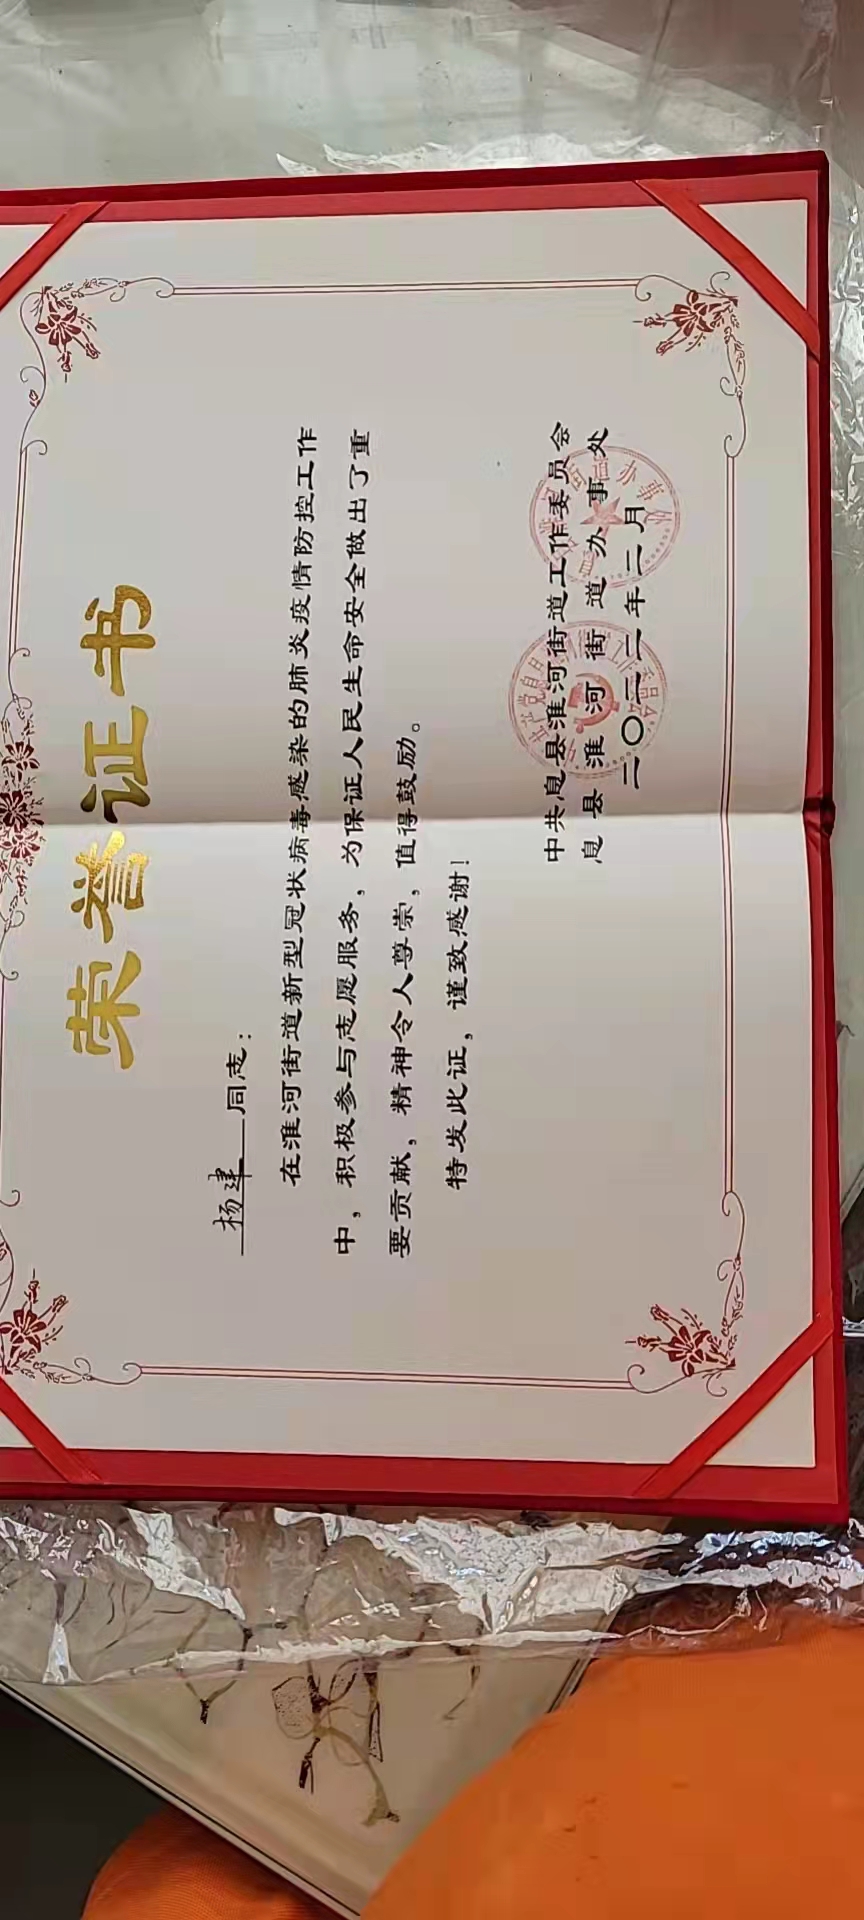 荣誉证书
杨建同志：
在淮河街道新型冠状病毒感染的肺炎疫情防控工作
中，积极参与志愿服务，为保证人民生命安全做出了重
要贡献，精神令人尊崇，值得鼓励。
特发此证，谨致感谢！
中共息县淮河街道工作委员会
息县淮河街道办事处
二〇二二年二月